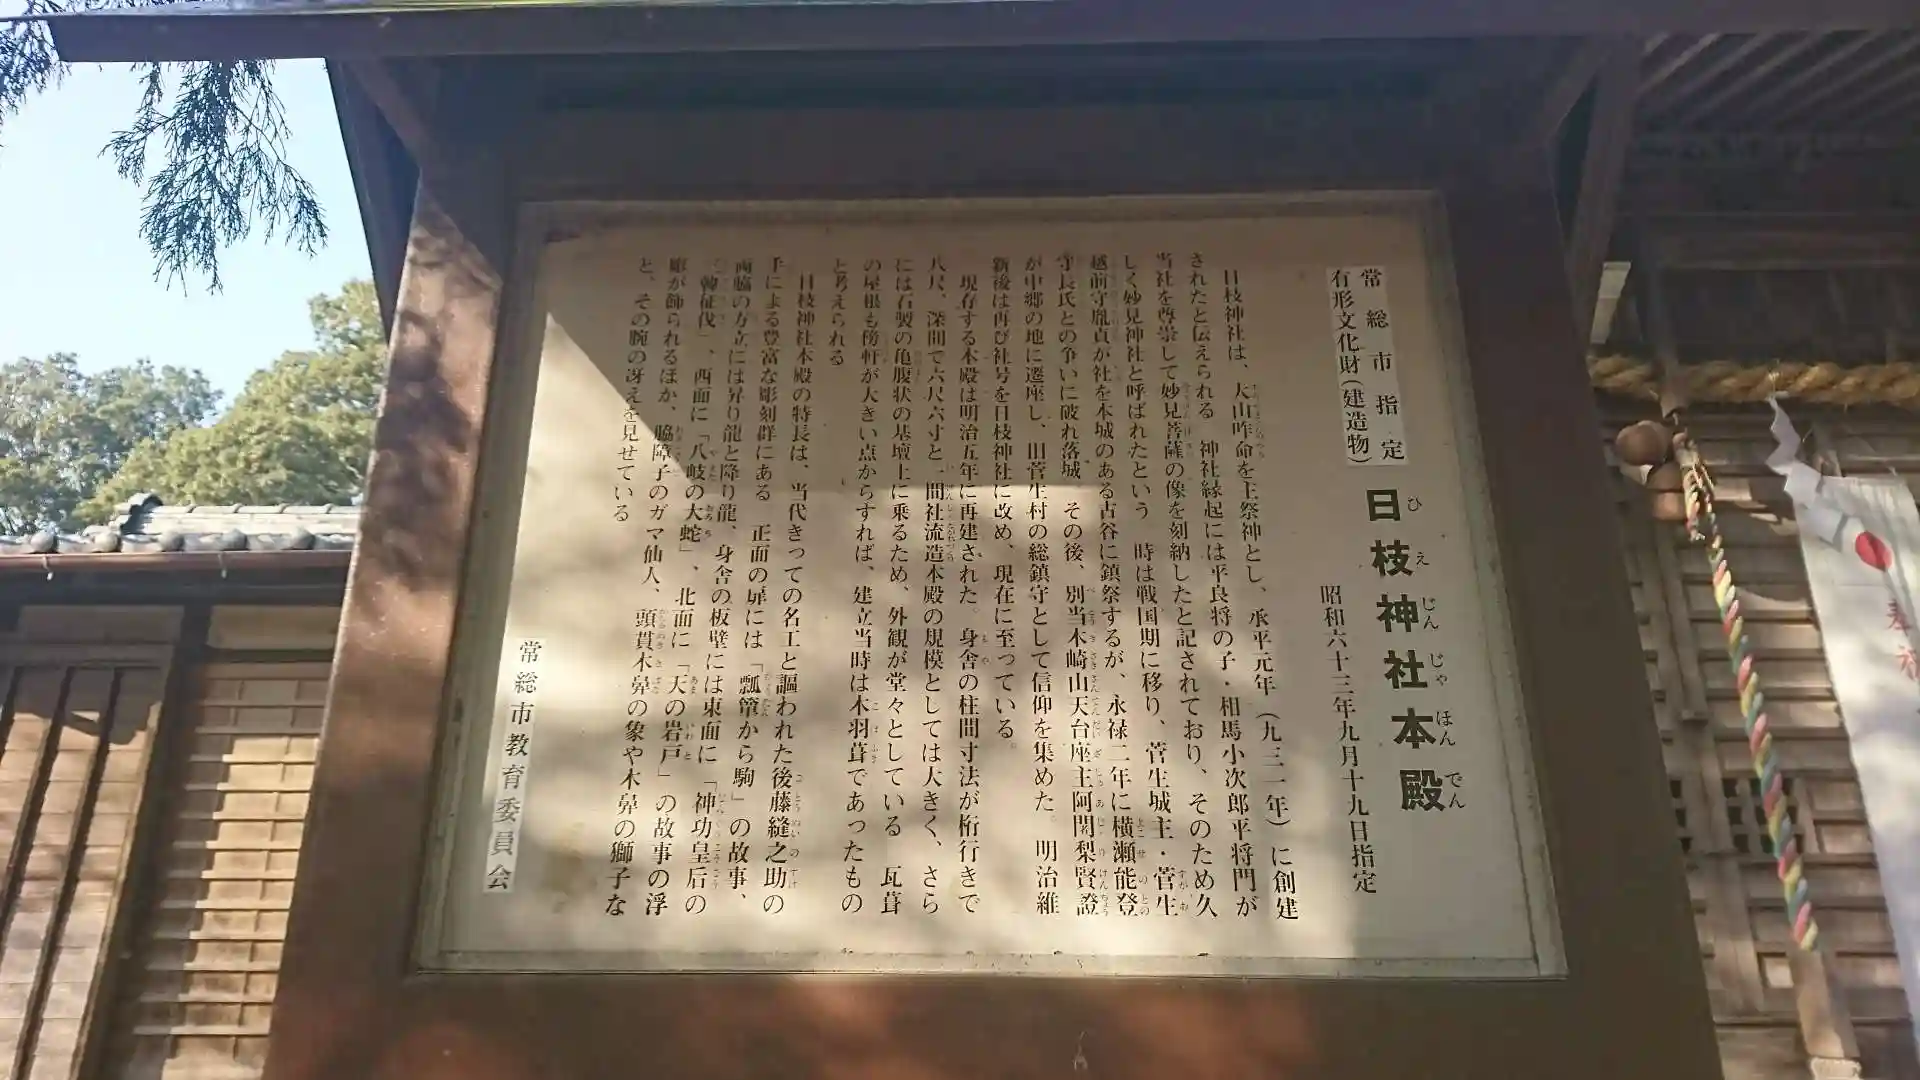 常総市指定
有形文化財(建造物)
日枝神社本殿
ひえじんじゃほんでん
昭和六十三年九月十九日指定
日枝神社は、大山咋命を主祭神とし、承平元年（九三一年）に創建
されたと伝えられる 神社縁起には平良将の子・相馬小次郎平将門が
当社を尊崇して妙見菩薩の像を刻納したと記されており、そのため久
しく妙見神社と呼ばれたという 時は戦国期に移り、菅生城主・菅生
越前守胤貞が社を本城のある古谷に鎮祭するが、永禄二年に横瀬能登
守長氏との争いに破れ落城 その後、別当木崎山天台座主阿闍梨賢證
が中郷の地に遷座し、旧菅生村の総鎮守として信仰を集めた。明治維
新後は再び社号を日枝神社に改め、現在に至っている。
現存する本殿は明治五年に再建された。身舎の柱間寸法が桁行きで
八尺、深間で六尺六寸と一間社流造本殿の規模としては大きく、さら
には石製の亀腹状の基壇上に乗るため、外観が堂々としている 瓦葺
の屋根も傍軒が大きい点からすれば、建立当時は木羽葺であったもの
と考えられる
日枝神社本殿の特長は、当代きっての名工と謳われた後藤縫之助の
手による豊富な彫刻群にある 正面の扉には「瓢箪から駒」の故事、
両脇の方立には昇り龍と降り龍、身舎の板壁には東面に「神功皇后の
韓征伐」、西面に「八岐の大蛇」、北面に「天の岩戸」の故事の浮
彫が飾られるほか、脇障子のガマ仙人、頭貫木鼻の象や木鼻の獅子な
ど、その腕の冴えを見せている
常総市教育委員会